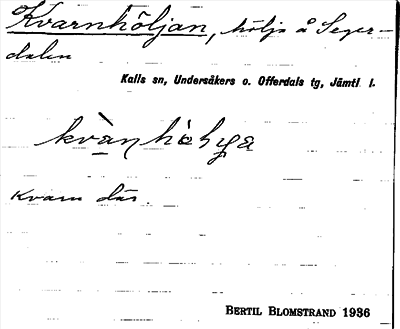 Kvarnhöljan, hölja å Seger-
dalen
Kalls sn, Undersåkers o. Offerdals tg, Jämtl l.
Kvarn där.
BERTIL BLOMSTRAND 1936